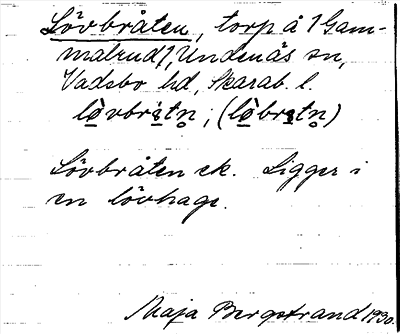 Lövbråten, torp å [Gam-
malrud], Undenäs sn,
Vadsbo hd, Skarab. l.
lò̤vbrìtn̥; (lò̤brìtn̥)
Lövbråten ek. Ligger i
en lövhage.
Maja Bergstrand 1930.